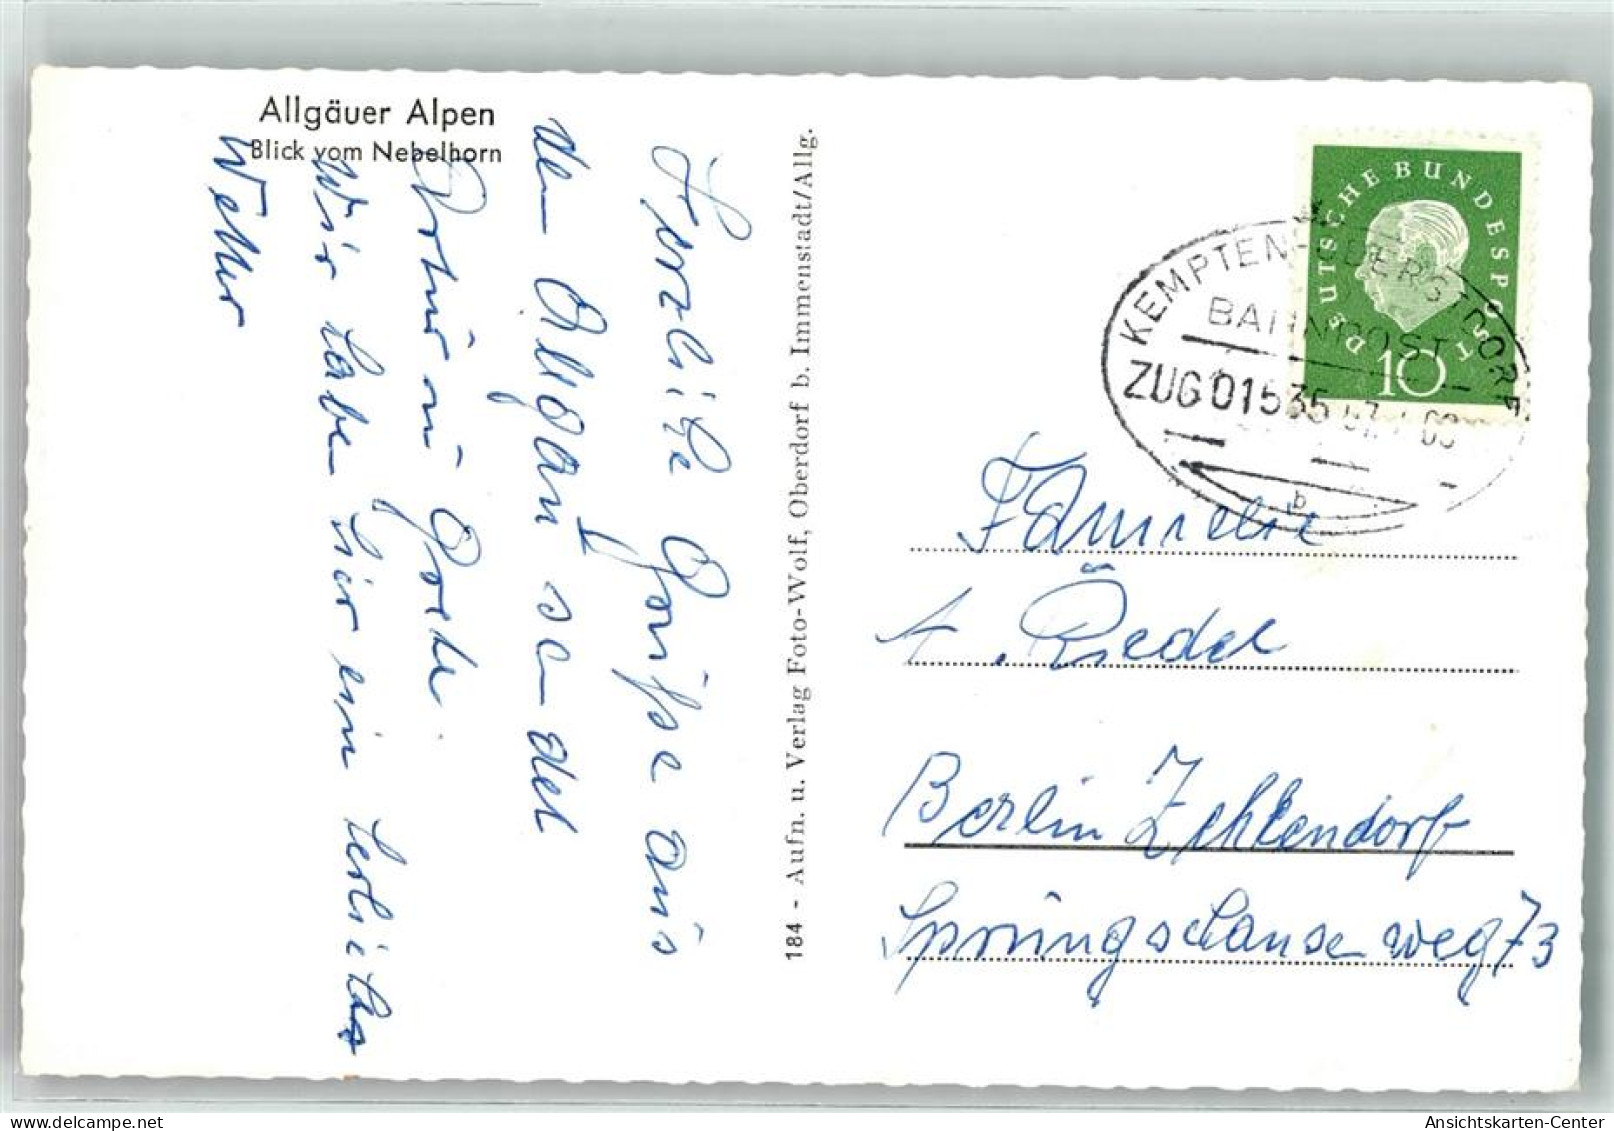 Allgäuer Alpen
Blick vom Nebelhorn
Herzliche Grüße aus
dem Allgäu sendet
Artur u. Grete.
Wir haben hier ein herrliches
Wetter
184 - Aufn. u. Verlag Foto-Wolf, Oberdorf b. Immenstadt/Allg.
DEUTSCHE BUNDESPOST
10
KEMPTEN-OBERSTDORF
BAHNPOST
ZUG 01535
b
Familie
A. Riedel
Berlin Zehlendorf
Springschanse weg 73
Ansichtskarten-Center